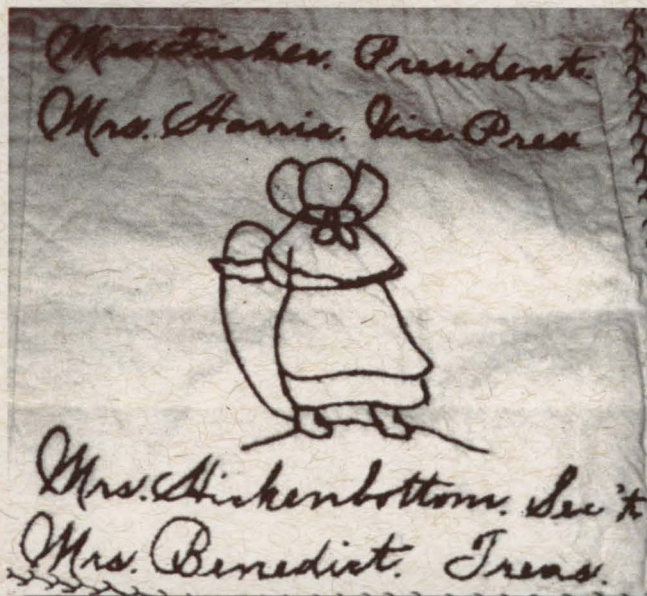 Mrs. Fisher. President.
Mrs. Harris. Vice Pres
Mrs. Hickenbottom. Sec't
Mrs. Benedict. Treas.